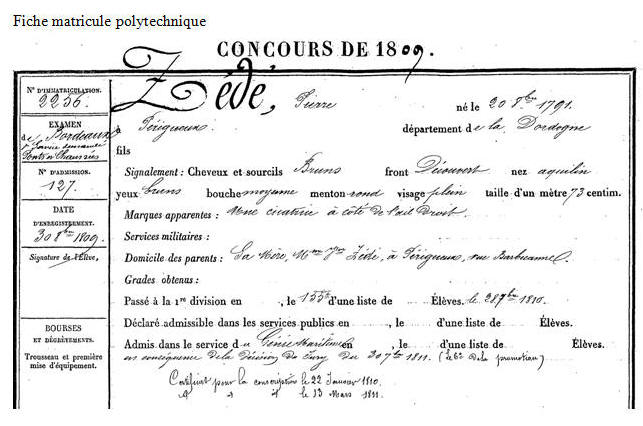 Fiche matricule polytechnique
CONCOURS DE 1809.
N° D'IMMATRICULATION.
2256.
EXAMEN
de Bordeaux
Service demandé
Ponts et Chaussées
N° D'ADMISSION.
127.
DATE
D'ENREGISTREMENT.
30 8bre 1809.
Signature de l'Élève.
BOURSES
ET DÉGRÈVEMENTS.
Trousseau et première
mise d'équipement.
Zédé, Pierre né le 20 8bre 1791.
à Périgueux département de la Dordogne
fils
Signalement : Cheveux et sourcils Bruns front Découvert nez aquilin
yeux bruns bouche moyenne menton rond visage plein taille d'un mètre 73 centim.
Marques apparentes : Une cicatrice à côté de l'œil Droit.
Services militaires :
Domicile des parents : Sa Mère, Mme Zédé, à Périgueux, rue
Grades obtenus :
Passé à la 1re division en , le 155e d'une liste de Élèves. le 28 7bre 1810.
Déclaré admissible dans les services publics en , le d'une liste de Élèves.
Admis dans le service du Génie Maritime en , le d'une liste de Élèves.
en conséquence de la Décision du Jury du 30 7bre 1811. (le 6e de la promotion)
Certificat pour la conscription le 22 Janvier 1810.
d° " " le 13 Mars 1811.